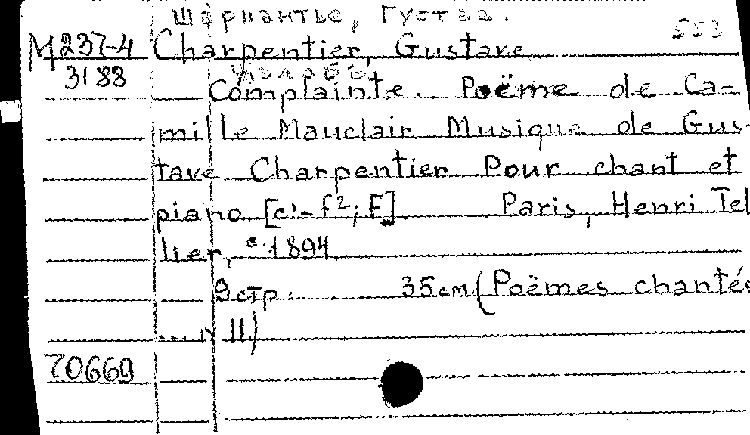 Шарпантье, Густав.
553
М237-4 Charpentier, Gustave
3188
Complainte. Poëme de Ca-
mille Mauclair Musique de Gus-
tave Charpentier Pour chant et
piano [c¹-f²; F] Paris, Henri Tel
lier, c 1894
9 стр. 35 см (Poëmes chantés
N 11)
70669